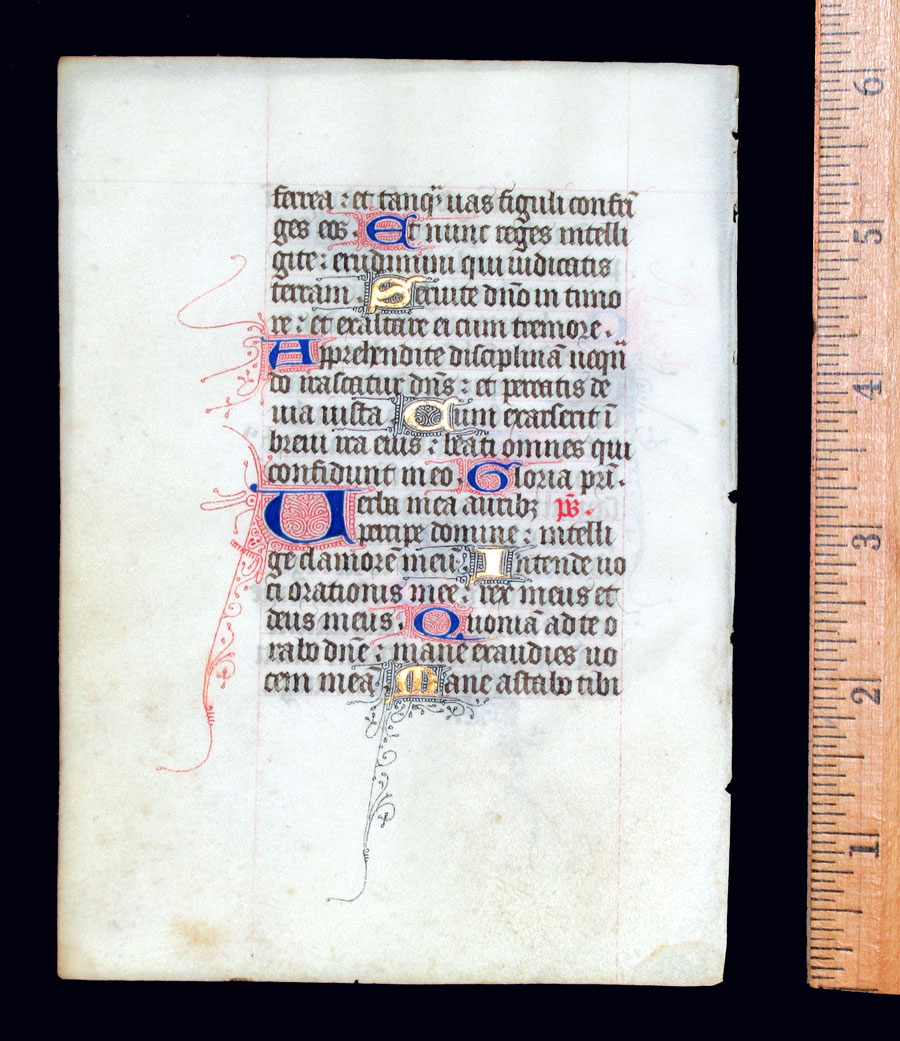 ferrea : et tanq̃ uas figuli confrĩ
ges eos . Et nunc reges intelli
gite : erudimini qui iudicatis
terram . Seruite dño in timo
re : et exultate ei cum tremore .
Apprehendite disciplinã neqñ
do irascatur dñs : et pereatis de
uia iusta . Cum exarserit ĩ
breui ira eius : beati omnes qui
confidunt in eo . Gloria prĩ .
Uerba mea auribȝ pš .
percipe domine : intelli
ge clamorẽ meũ . Intende uo
ci orationis mee : rex meus et
deus meus . Quoniã ad te o
rabo dñe : mane exaudies uo
cem meã Mane astabo tibi
6
5
4
3
2
1